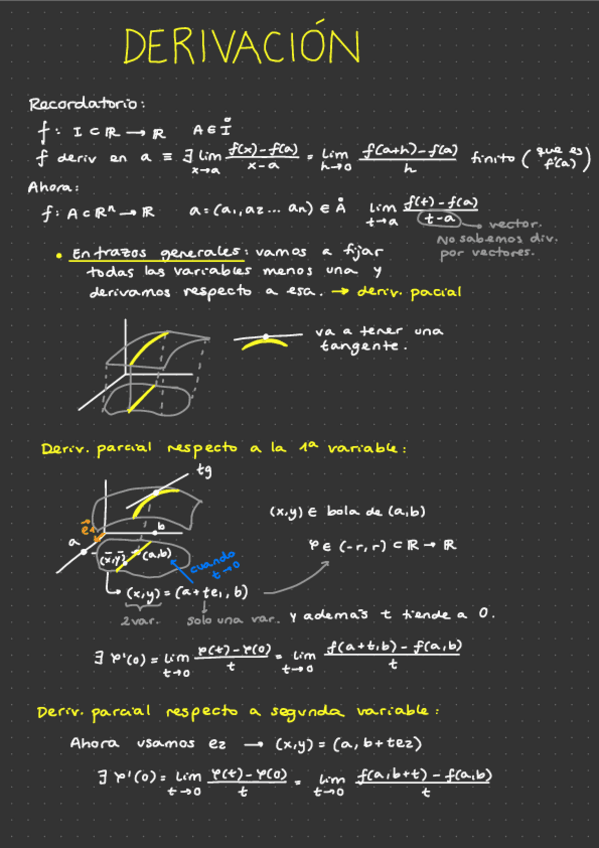 DERIVACIÓN
Recordatorio:
f: I ⊂ ℝ → ℝ   A ∈ I̊
f deriv en a ≡ ∃ lim_{x→a} (f(x)-f(a))/(x-a) = lim_{h→0} (f(a+h)-f(a))/h finito (que es f'(a))
Ahora:
f: A ⊂ ℝⁿ → ℝ   a = (a₁, a₂ ... an) ∈ Å   lim_{t→a} (f(t)-f(a))/(t-a)
→ vector.
No sabemos div.
por vectores.
• En trazos generales: vamos a fijar
todas las variables menos una y
derivamos respecto a esa. → deriv. pacial
va a tener una
tangente.
Deriv. parcial respecto a la 1ª variable:
tg
e⃗₁
a
b
(x̄,ȳ)
(a,b)
cuando
t→0
(x,y) ∈ bola de (a,b)
φ ∈ (-r, r) ⊂ ℝ → ℝ
↳ (x,y) = (a+te₁, b)
2 var.   solo una var.   y además t tiende a 0.
∃ φ'(0) = lim_{t→0} (φ(t)-φ(0))/t = lim_{t→0} (f(a+t,b) - f(a,b))/t
Deriv. parcial respecto a segunda variable:
Ahora usamos e₂ → (x,y) = (a, b+te₂)
∃ φ'(0) = lim_{t→0} (φ(t)-φ(0))/t = lim_{t→0} (f(a,b+t) - f(a,b))/t